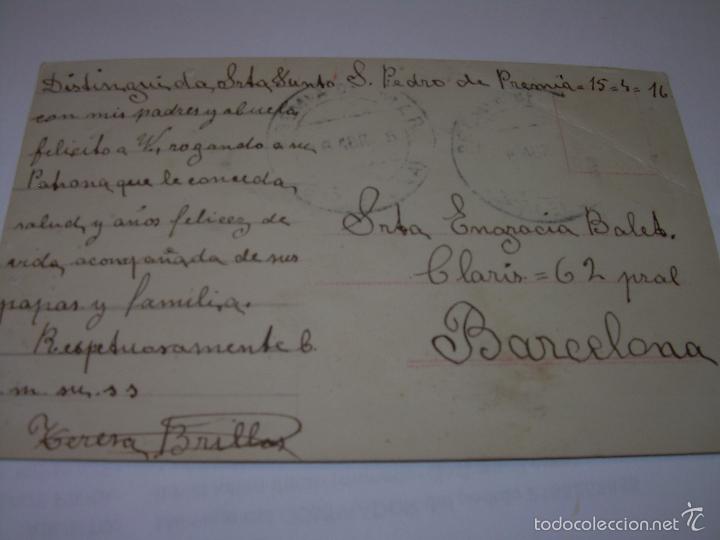 Distinguida Srta Junto S. Pedro de Premiá = 15 = 4 = 16
con mis padres y abuela
felicito a V, rogando a su
Patrona que le conceda,
salud, y años felicez de
vida, acompañada de sus
papas y familia.
Respetuosamente b.
m. su. s s
Teresa Brillas
Srta Engracia Balet.
Claris = 62 pral
Barcelona
todocoleccion.net